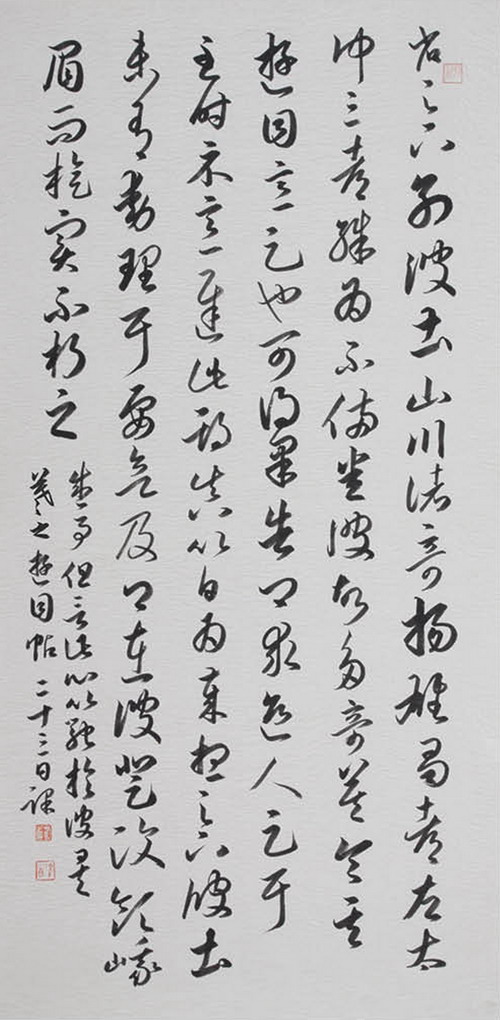 省足下別彼土山川諸奇揚雄蜀都左太
沖三都殊為不備悉彼故多奇益令其
遊目意足也可得果告卿求迎人足耳
至時示意遲此期真以日為歲想足下彼土
未有動理耳要欲及卿在彼登汶領峨
眉而旋實不朽之
盛事但言此心以馳於彼矣
羲之遊目帖二十三日